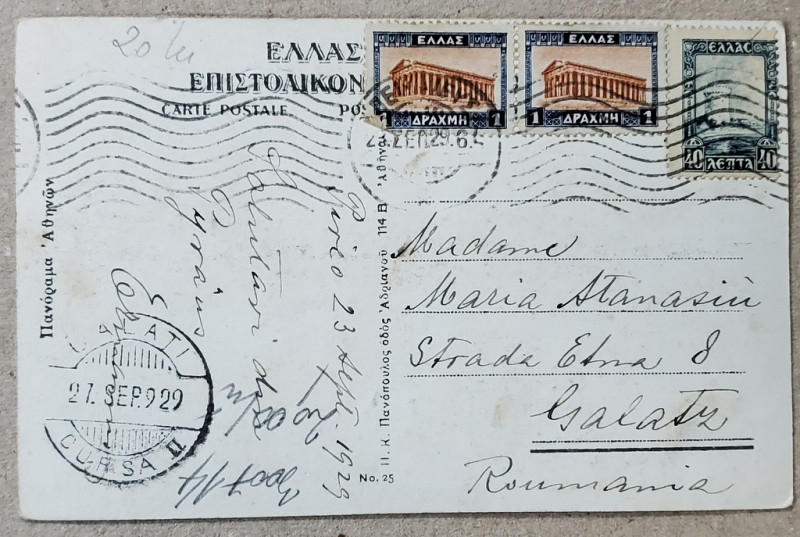 20 lei
ΕΛΛΑΣ
ΕΠΙΣΤΟΛΙΚΟΝ
CARTE POSTALE PO
ΕΛΛΑΣ
1 ΔΡΑΧΜΗ 1
ΕΛΛΑΣ
1 ΔΡΑΧΜΗ 1
ΕΛΛΑΣ
40 ΛΕΠΤΑ 40
ΣΕΠ 29.6
Πανόραμα Ἀθηνῶν
Pireo 23 Sept. 1929
Salutări din
Pyräus
GALATI
27. SEP. 929
CURSA II
Π. Κ. Πανόπουλος ὁδὸς Ἀδριανοῦ 114 Β Ἀθῆναι
No. 25
Madame
Maria Atanasiu
Strada Etna 8
Galatz
Roumania